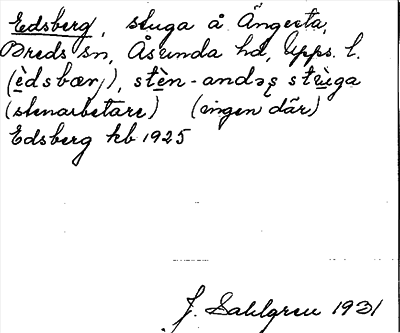 Edsberg, stuga å Ängesta,
Breds sn, Åsunda hd, Upps. l.
(èdsbærj), stèn-andəs stùga
(stenarbetare) (ingen där)
Edsberg kb 1925
J. Sahlgren 1931